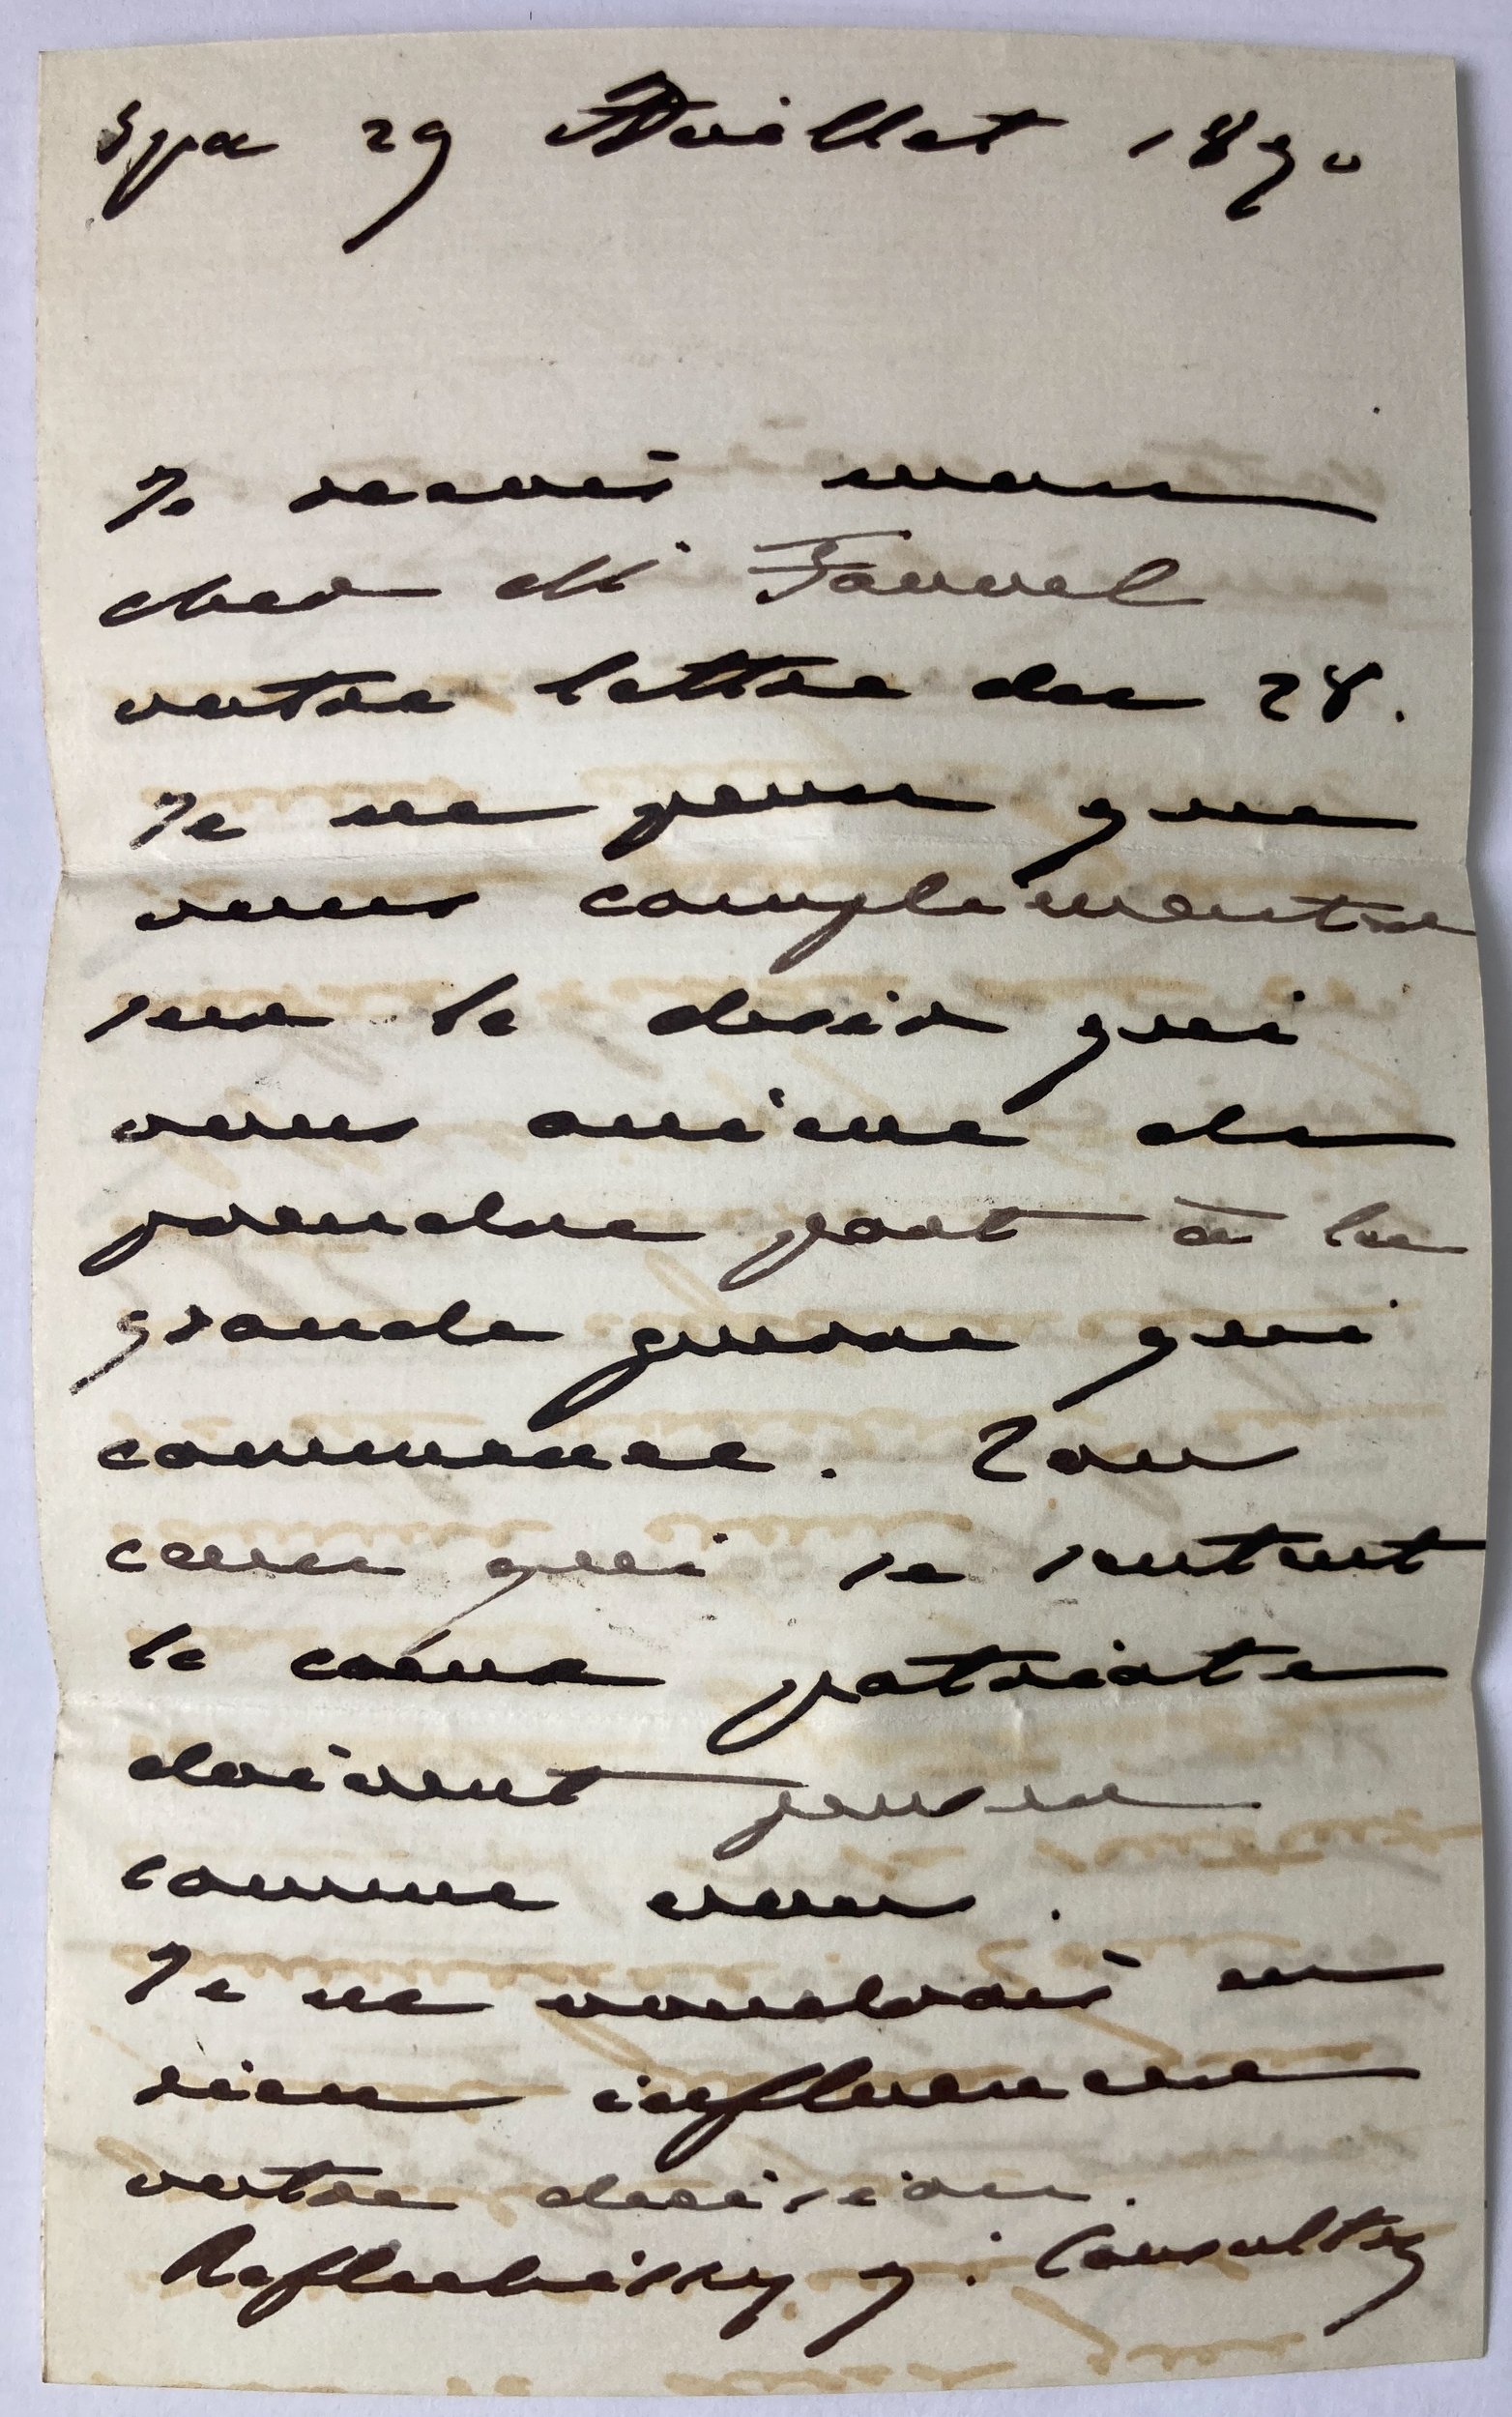 Spa 29 Juillet 1870
Je recois mon
cher M Fauvel
votre lettre du 28.
Je ne peux que
vous complimenter
sur le desir qui
vous anime de
prendre part à la
grande guerre qui
commence. Tous
ceux qui se sentent
le cœur patriote
doivent penser
comme vous.
Je ne voudrais en
rien influencer
votre decision.
Reflechissez y. Consultez